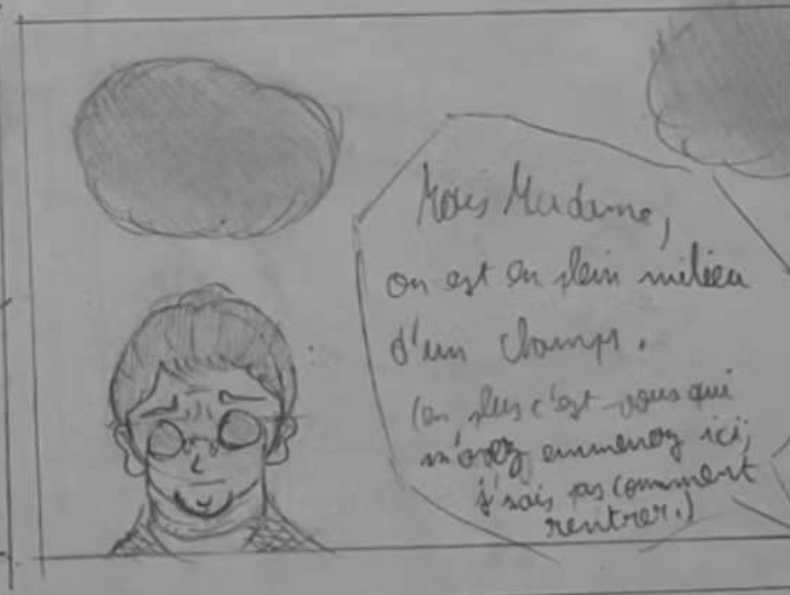 Mais Madame,
on est en plein milieu
d'un champs.
(en plus c'est vous qui
m'avez emmenez ici,
j'sais pas comment
rentrer.)